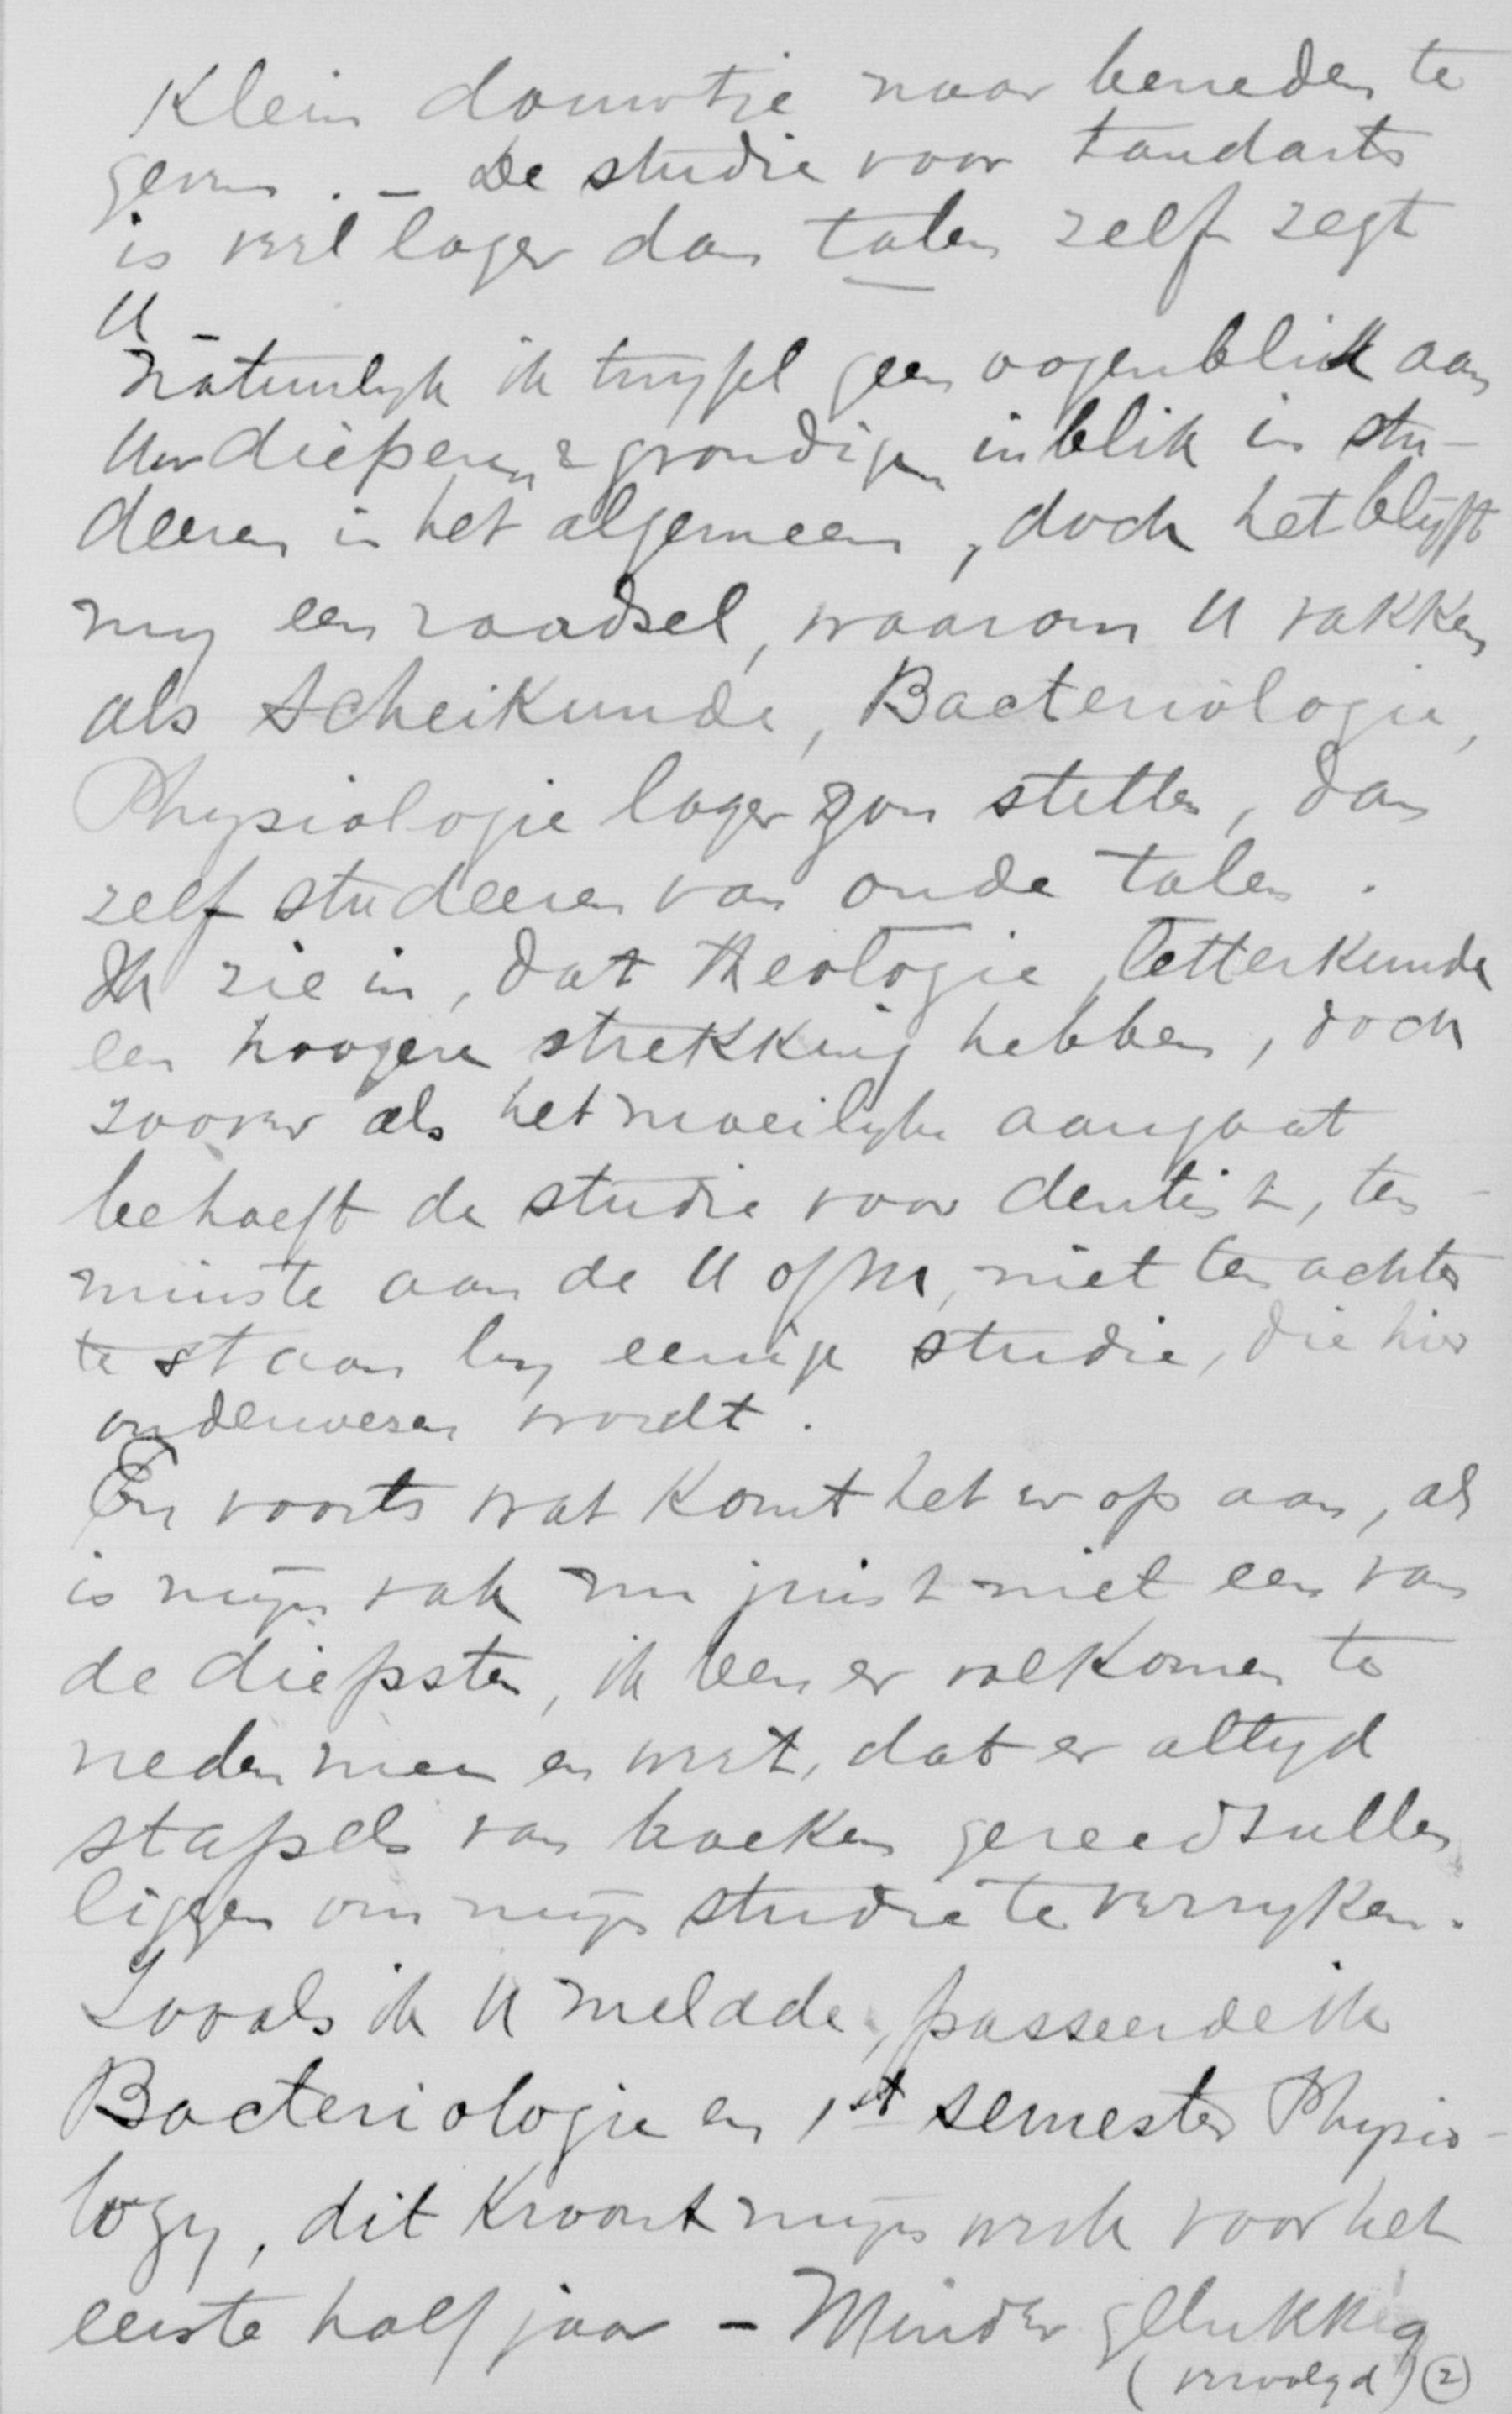 Klein douwtje naar beneden te
geven . – De studie voor tandarts
is veel lager dan talen zelf zegt
U –
Natuurlyk ik twyfel geen oogenblik aan
Uw dieperen & grondigen inblik in stu-
deeren in het algemeen, doch het blyft
my een raadsel, waarom U vakken
als Scheikunde, Bacteriologie,
Physiologie lager zou stellen, dan
zelf studeeren van oude talen .
Ik zie in, dat Theologie, letterkunde
een hoogere strekking hebben, doch
zoover als het moeilyke aangaat
behoeft de studie voor dentist, ten-
minste aan de U of M, niet ten achter
te staan by eenige studie, die hier
onderwezen wordt .
En voorts wat komt het er op aan, al
is mijn vak nu juist niet een van
de diepsten, ik ben er volkomen te
neden mee en weet, dat er altyd
stapels van boeken gereed zullen
liggen om mijn studie te verryken.
Zooals ik U meldde, passeerde ik
Bacteriologie en 1st semester Physio-
logy, dit kroont mijn werk voor het
eerste half jaar – Minder gelukkig
(vervolgd) 2